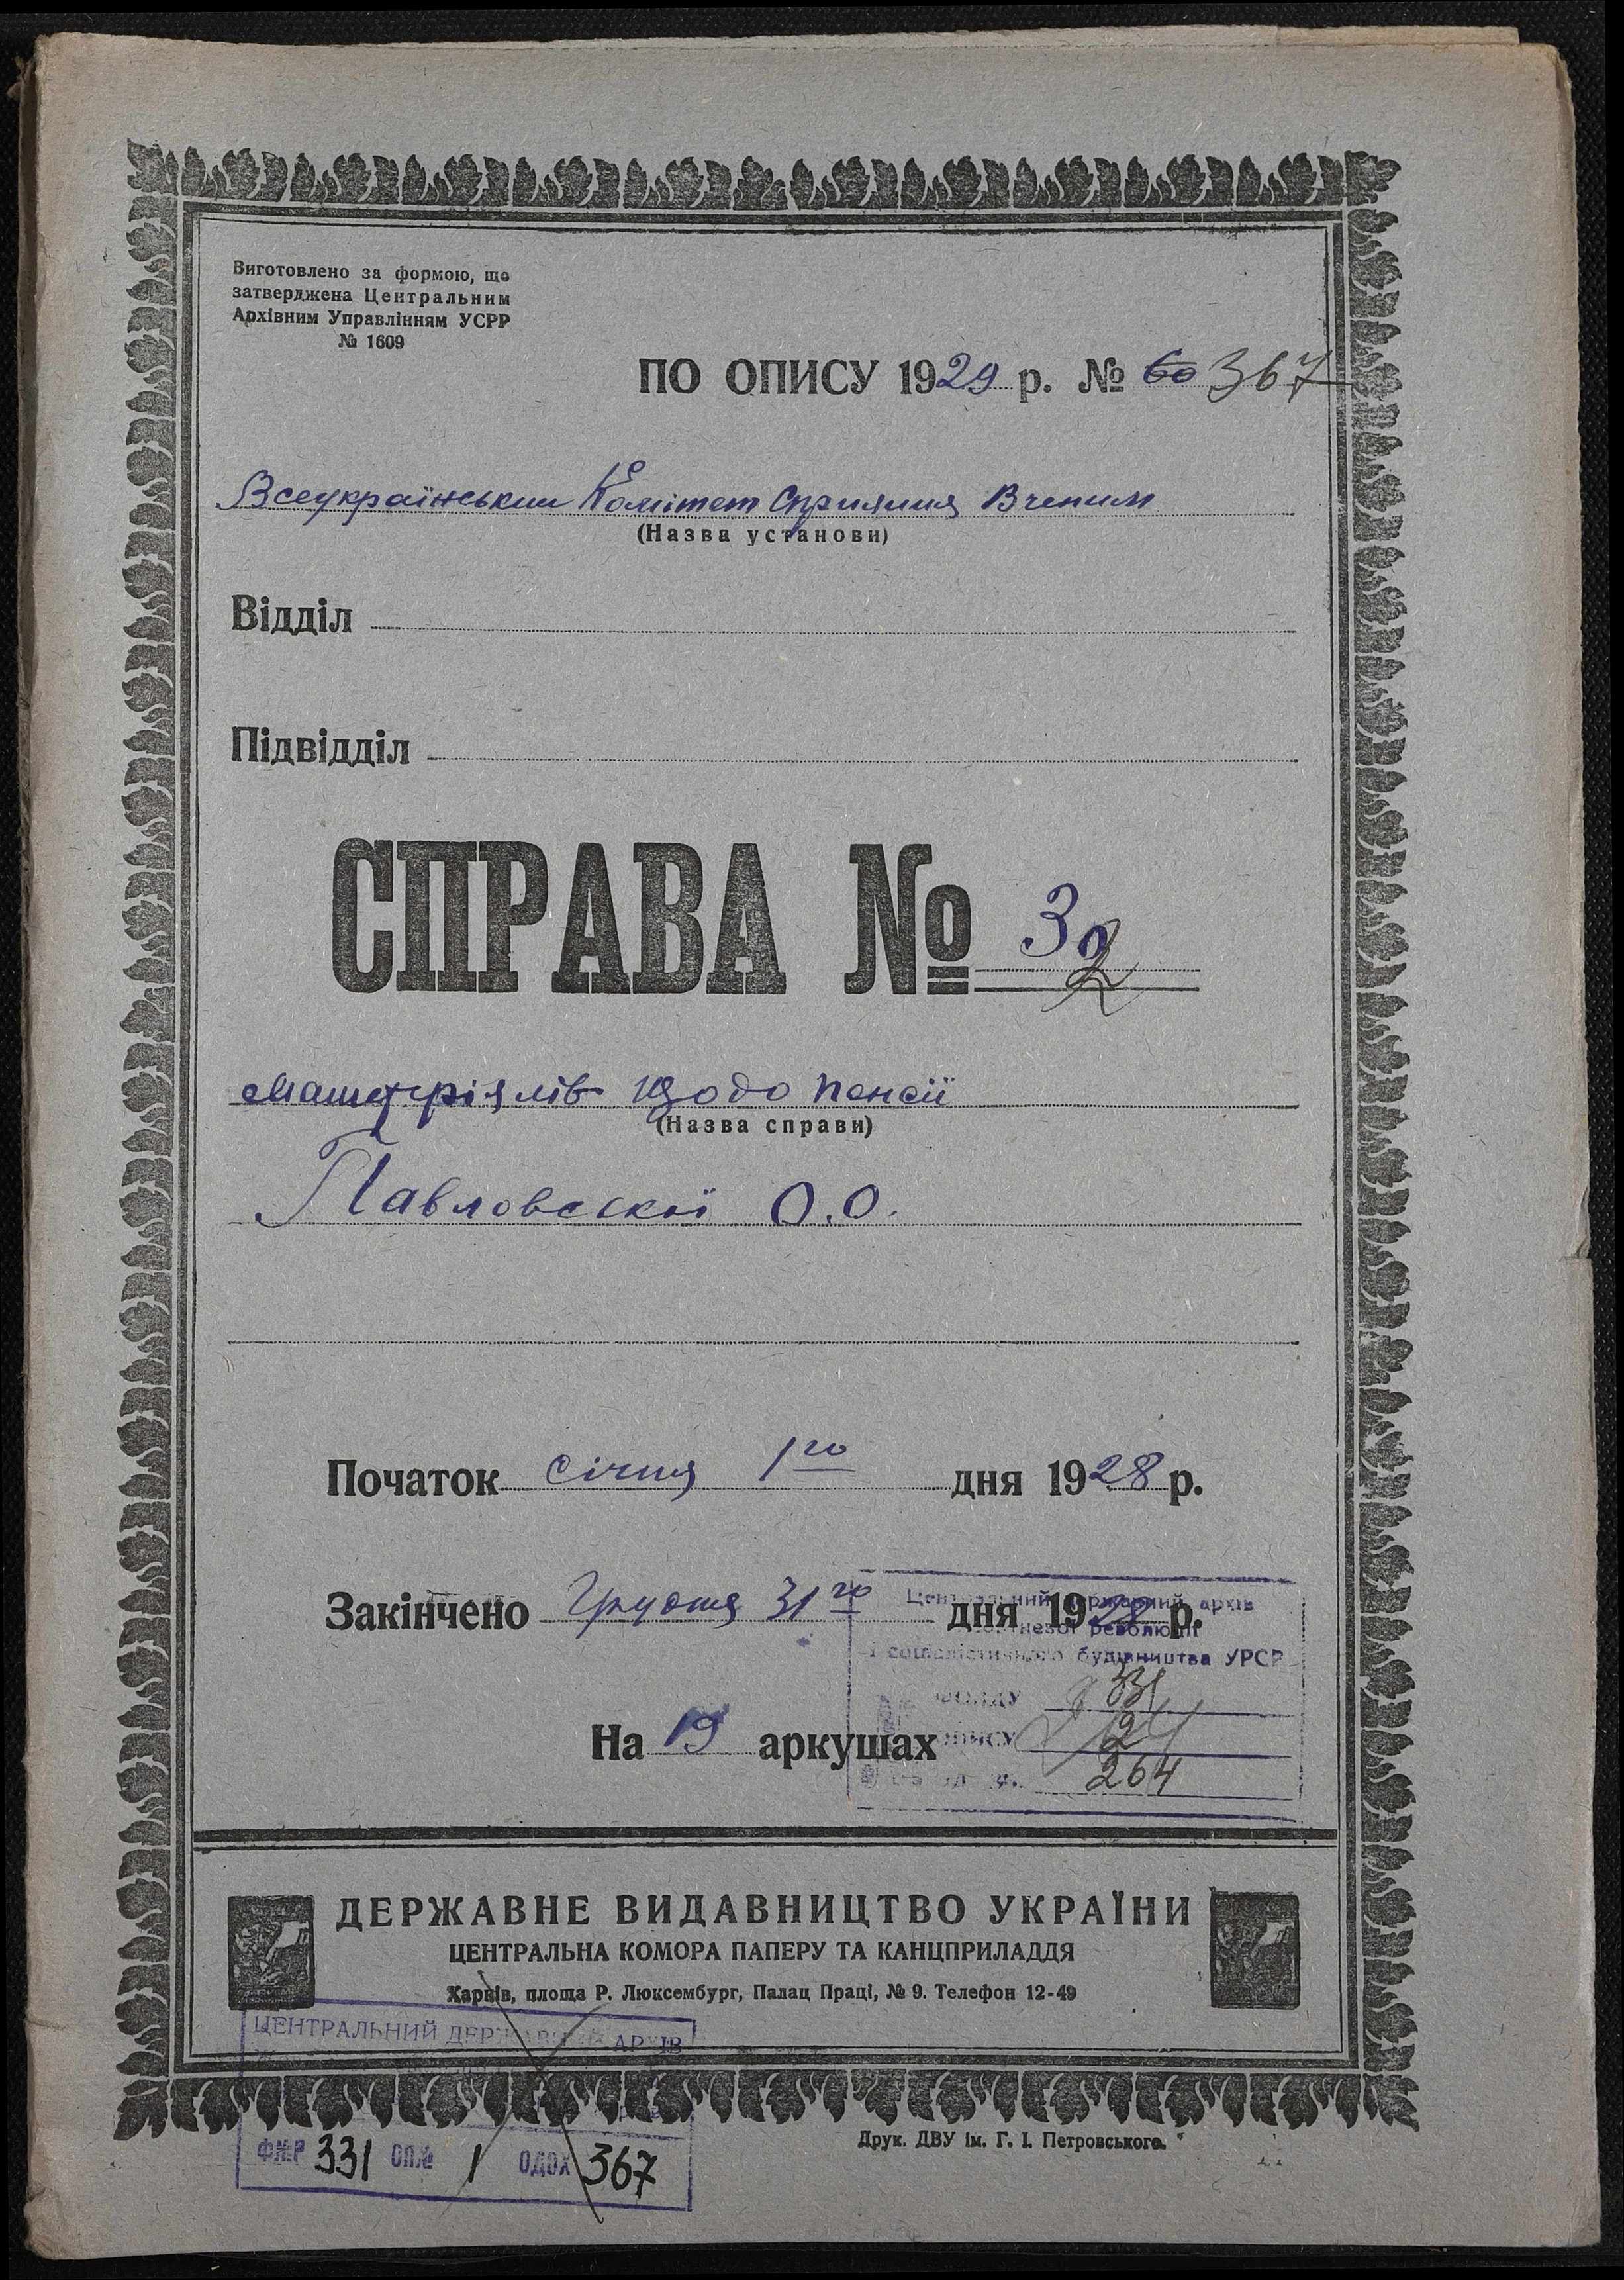 Виготовлено за формою, що
затверджена Центральним
Архівним Управлінням УСРР
№ 1609
ПО ОПИСУ 1929 р. № 60 367
Всеукраїнський Комітет Сприяння Вченим
(Назва установи)
Відділ
Підвідділ
СПРАВА № 32
Матеріялів щодо пенсії
(Назва справи)
Павловської О.О.
Початок січня 1го дня 1928 р.
Закінчено Грудня 31го дня 1928 р.
Центральний державний архів
Жовтневої революції
і соціалістичного будівництва УРСР
фонду 331
На 19 аркушах
опису 2
264
ДЕРЖАВНЕ ВИДАВНИЦТВО УКРАЇНИ
ЦЕНТРАЛЬНА КОМОРА ПАПЕРУ ТА КАНЦПРИЛАДДЯ
Харків, площа Р. Люксембург, Палац Праці, № 9. Телефон 12-49
ЦЕНТРАЛЬНИЙ ДЕРЖАВНИЙ АРХІВ
Ф№Р 331 ОП№ 1 ОДОХ 367
Друк. ДВУ ім. Г. І. Петровського.